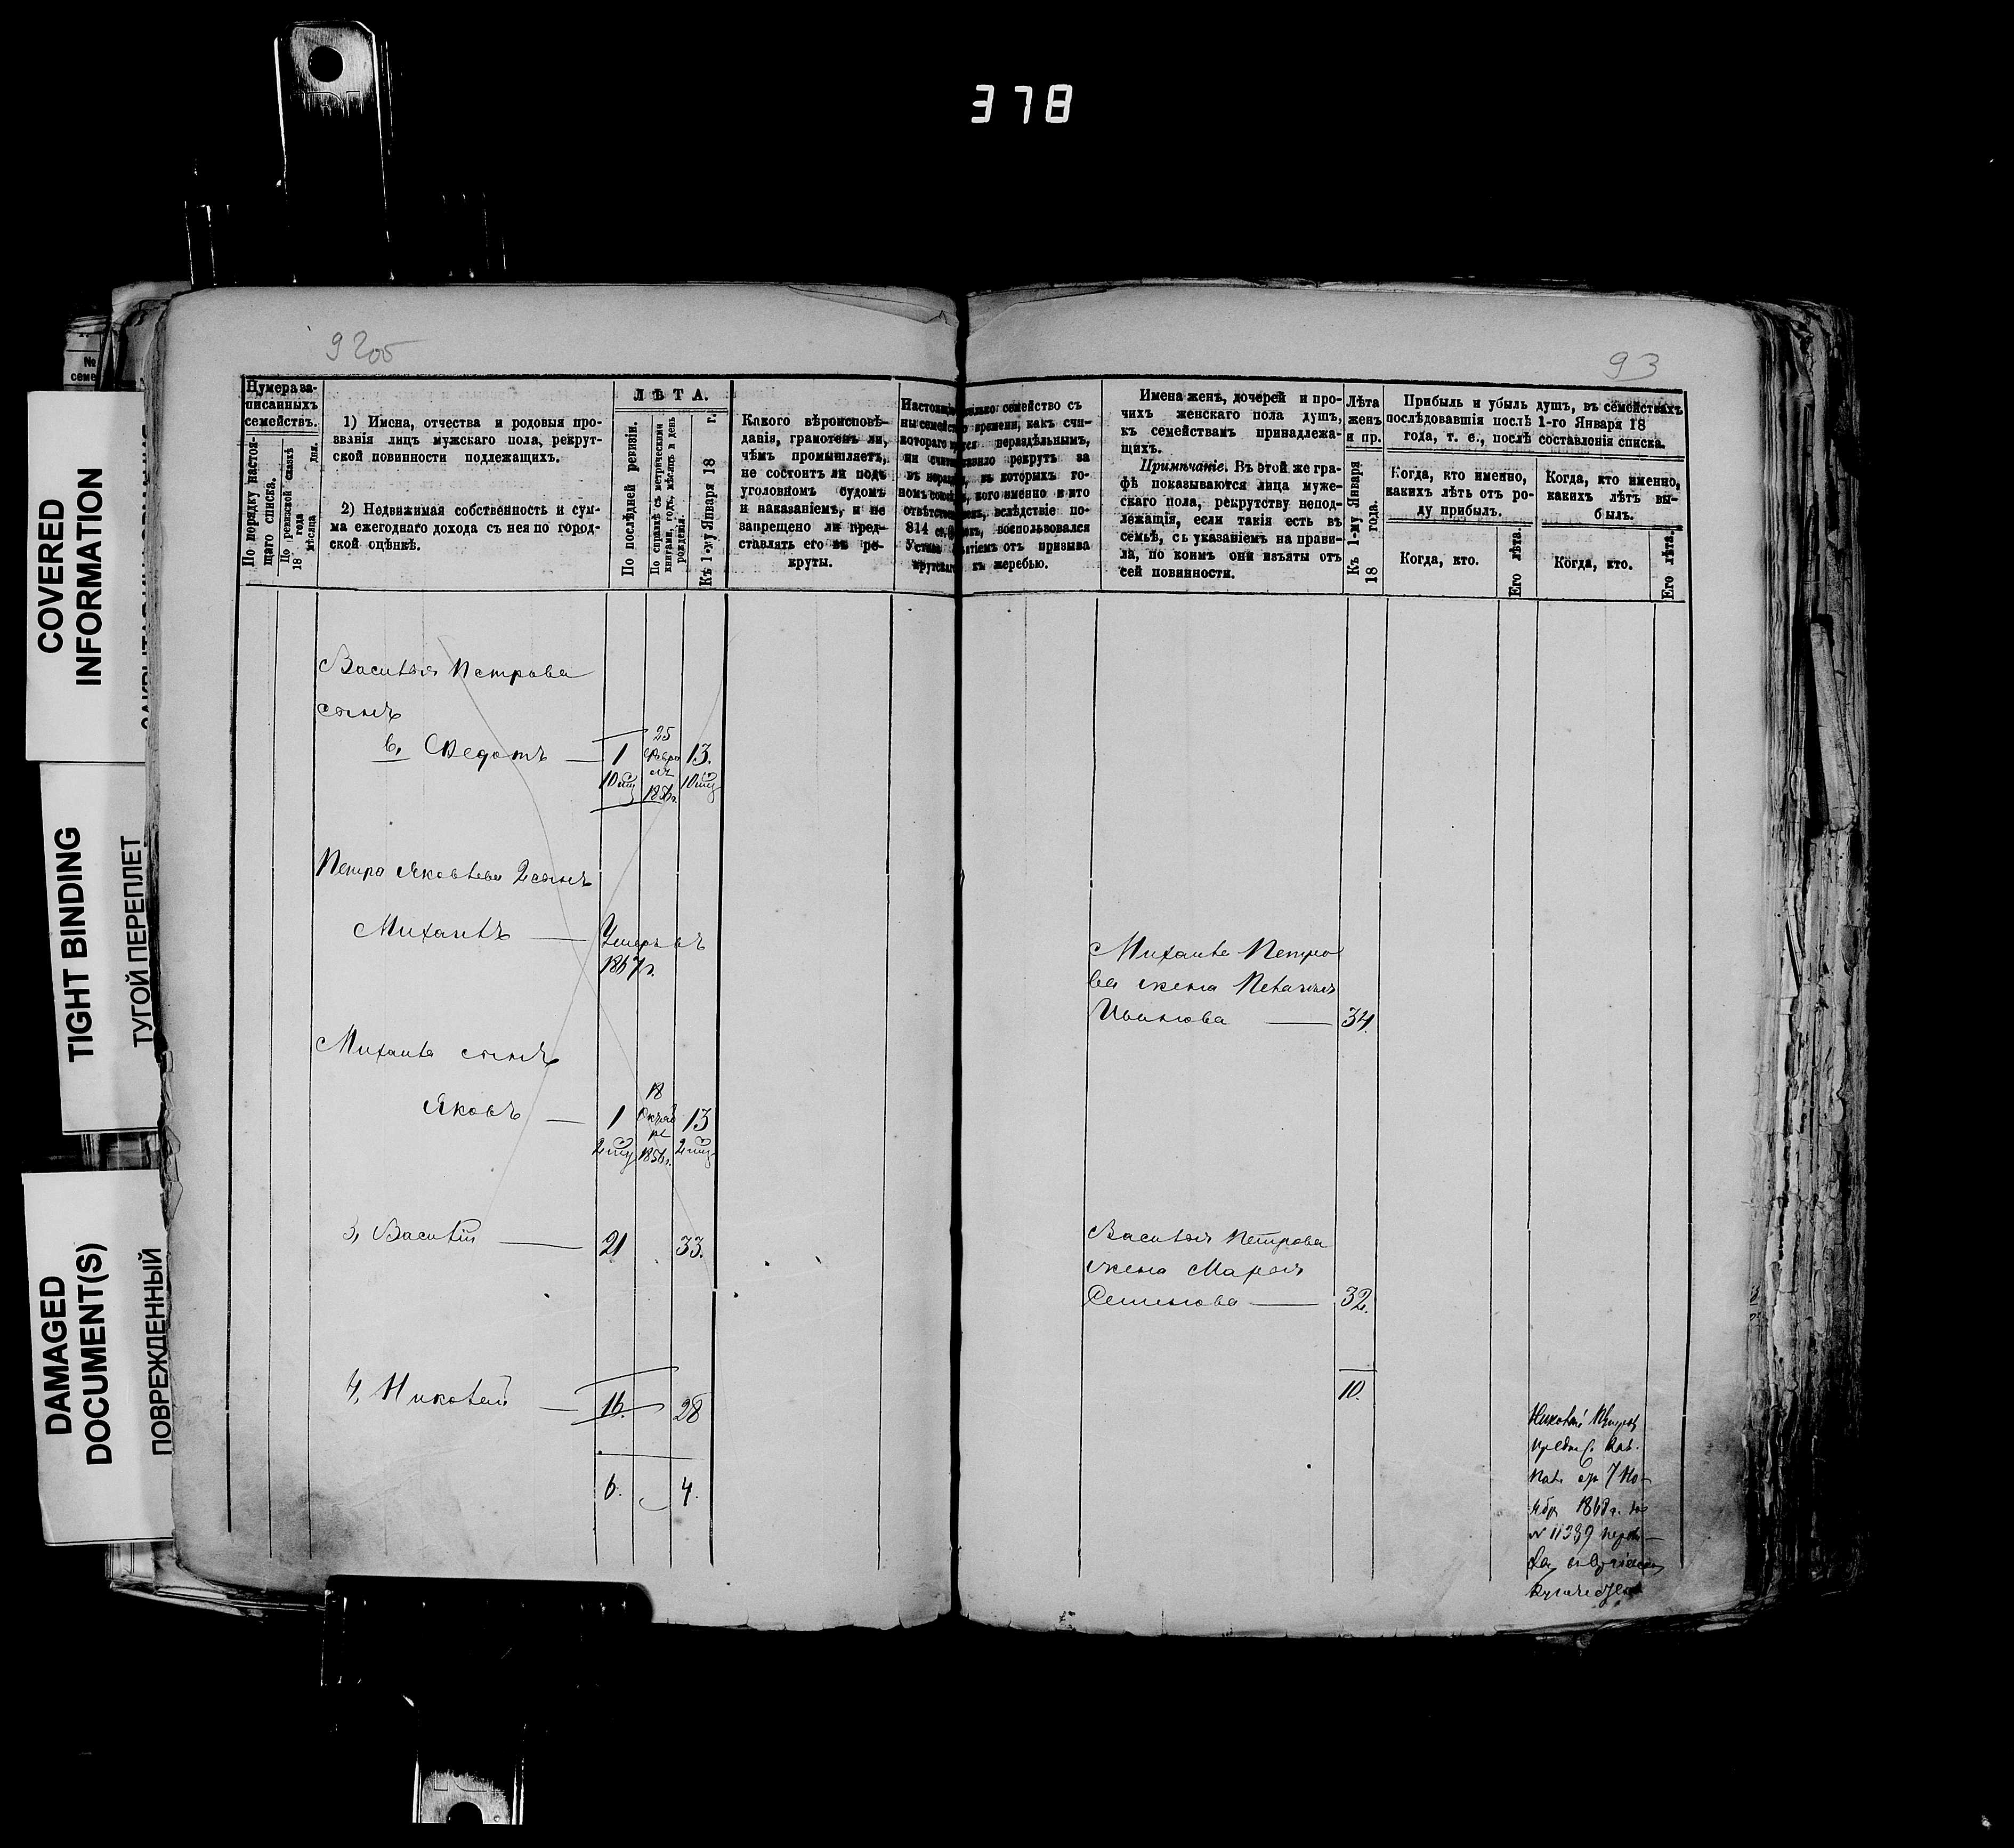 378
COVERED
INFORMATION
TIGHT BINDING
ТУГОЙ ПЕРЕПЛЕТ
DAMAGED
DOCUMENT(S)
ПОВРЕЖДЕННЫЙ
№
семе
9 205
93
Нумера за-
писанныхъ
семействъ.
По порядку настоя-
щаго списка.
По ревизской сказкѣ
18 года
мѣсяца дня.
1) Имена, отчества и родовыя про-
званія лицъ мужскаго пола, рекрут-
ской повинности подлежащихъ.
2) Недвижимая собственность и сум-
ма ежегоднаго дохода съ нея по город-
ской оцѣнкѣ.
ЛѢТА.
По послѣдней ревизіи.
По справкѣ съ метрическими
книгами, годъ, мѣсяцъ и день
рожденія.
Къ 1-му Января 18 г.
Какого вѣроисповѣ-
данія, грамотенъ ли,
чѣмъ промышляетъ,
не состоитъ ли подъ
уголовномъ судомъ
и наказаніемъ, и не
запрещено ли пред-
ставлять его въ ре-
круты.
семейство съ
времени, какъ счи-
котораго нераздѣльнымъ,
рекрутъ за
въ которыхъ го-
кого именно и кто
вслѣдствіе по-
814 воспользовался
отъ призыва
къ жеребью.
Имена женъ, дочерей и про-
чихъ женскаго пола душъ,
къ семействамъ принадлежа-
щихъ.
Примѣчаніе. Въ этой же гра-
фѣ показываются лица муже-
скаго пола, рекрутству непод-
лежащія, если такія есть въ
семьѣ, съ указаніемъ на прави-
ла, по коимъ они изъяты отъ
сей повинности.
Лѣта
женъ
и пр.
Къ 1-му Января
18 года.
Прибыль и убыль душъ, въ семействахъ
послѣдовавшія послѣ 1-го Января 18
года, т. е., послѣ составленія списка.
Когда, кто именно,
какихъ лѣтъ отъ ро-
ду прибылъ.
Когда, кто именно,
какихъ лѣтъ вы-
былъ.
Когда, кто.
Его лѣта.
Когда, кто.
Его лѣта.
Василья Петрова
сынъ
6, Федотъ — 1 25 13.
10 10
Петра Яковлева 2 сынъ
Михаилъ — Умеръ въ
1867 г.
Михаила Петро
ва жена Пелагея
Иванова — 34.
Михаила сынъ
Яковъ — 1 18 Октяб 13
ря
2 1856 г. 2
3, Василій — 21 33.
Василья Петрова
жена Марья
Семенова — 32.
4, Николай — 16. 28
10.
6. 4.
Николай Петровъ
7 Но-
1868 г. за
№ 11389